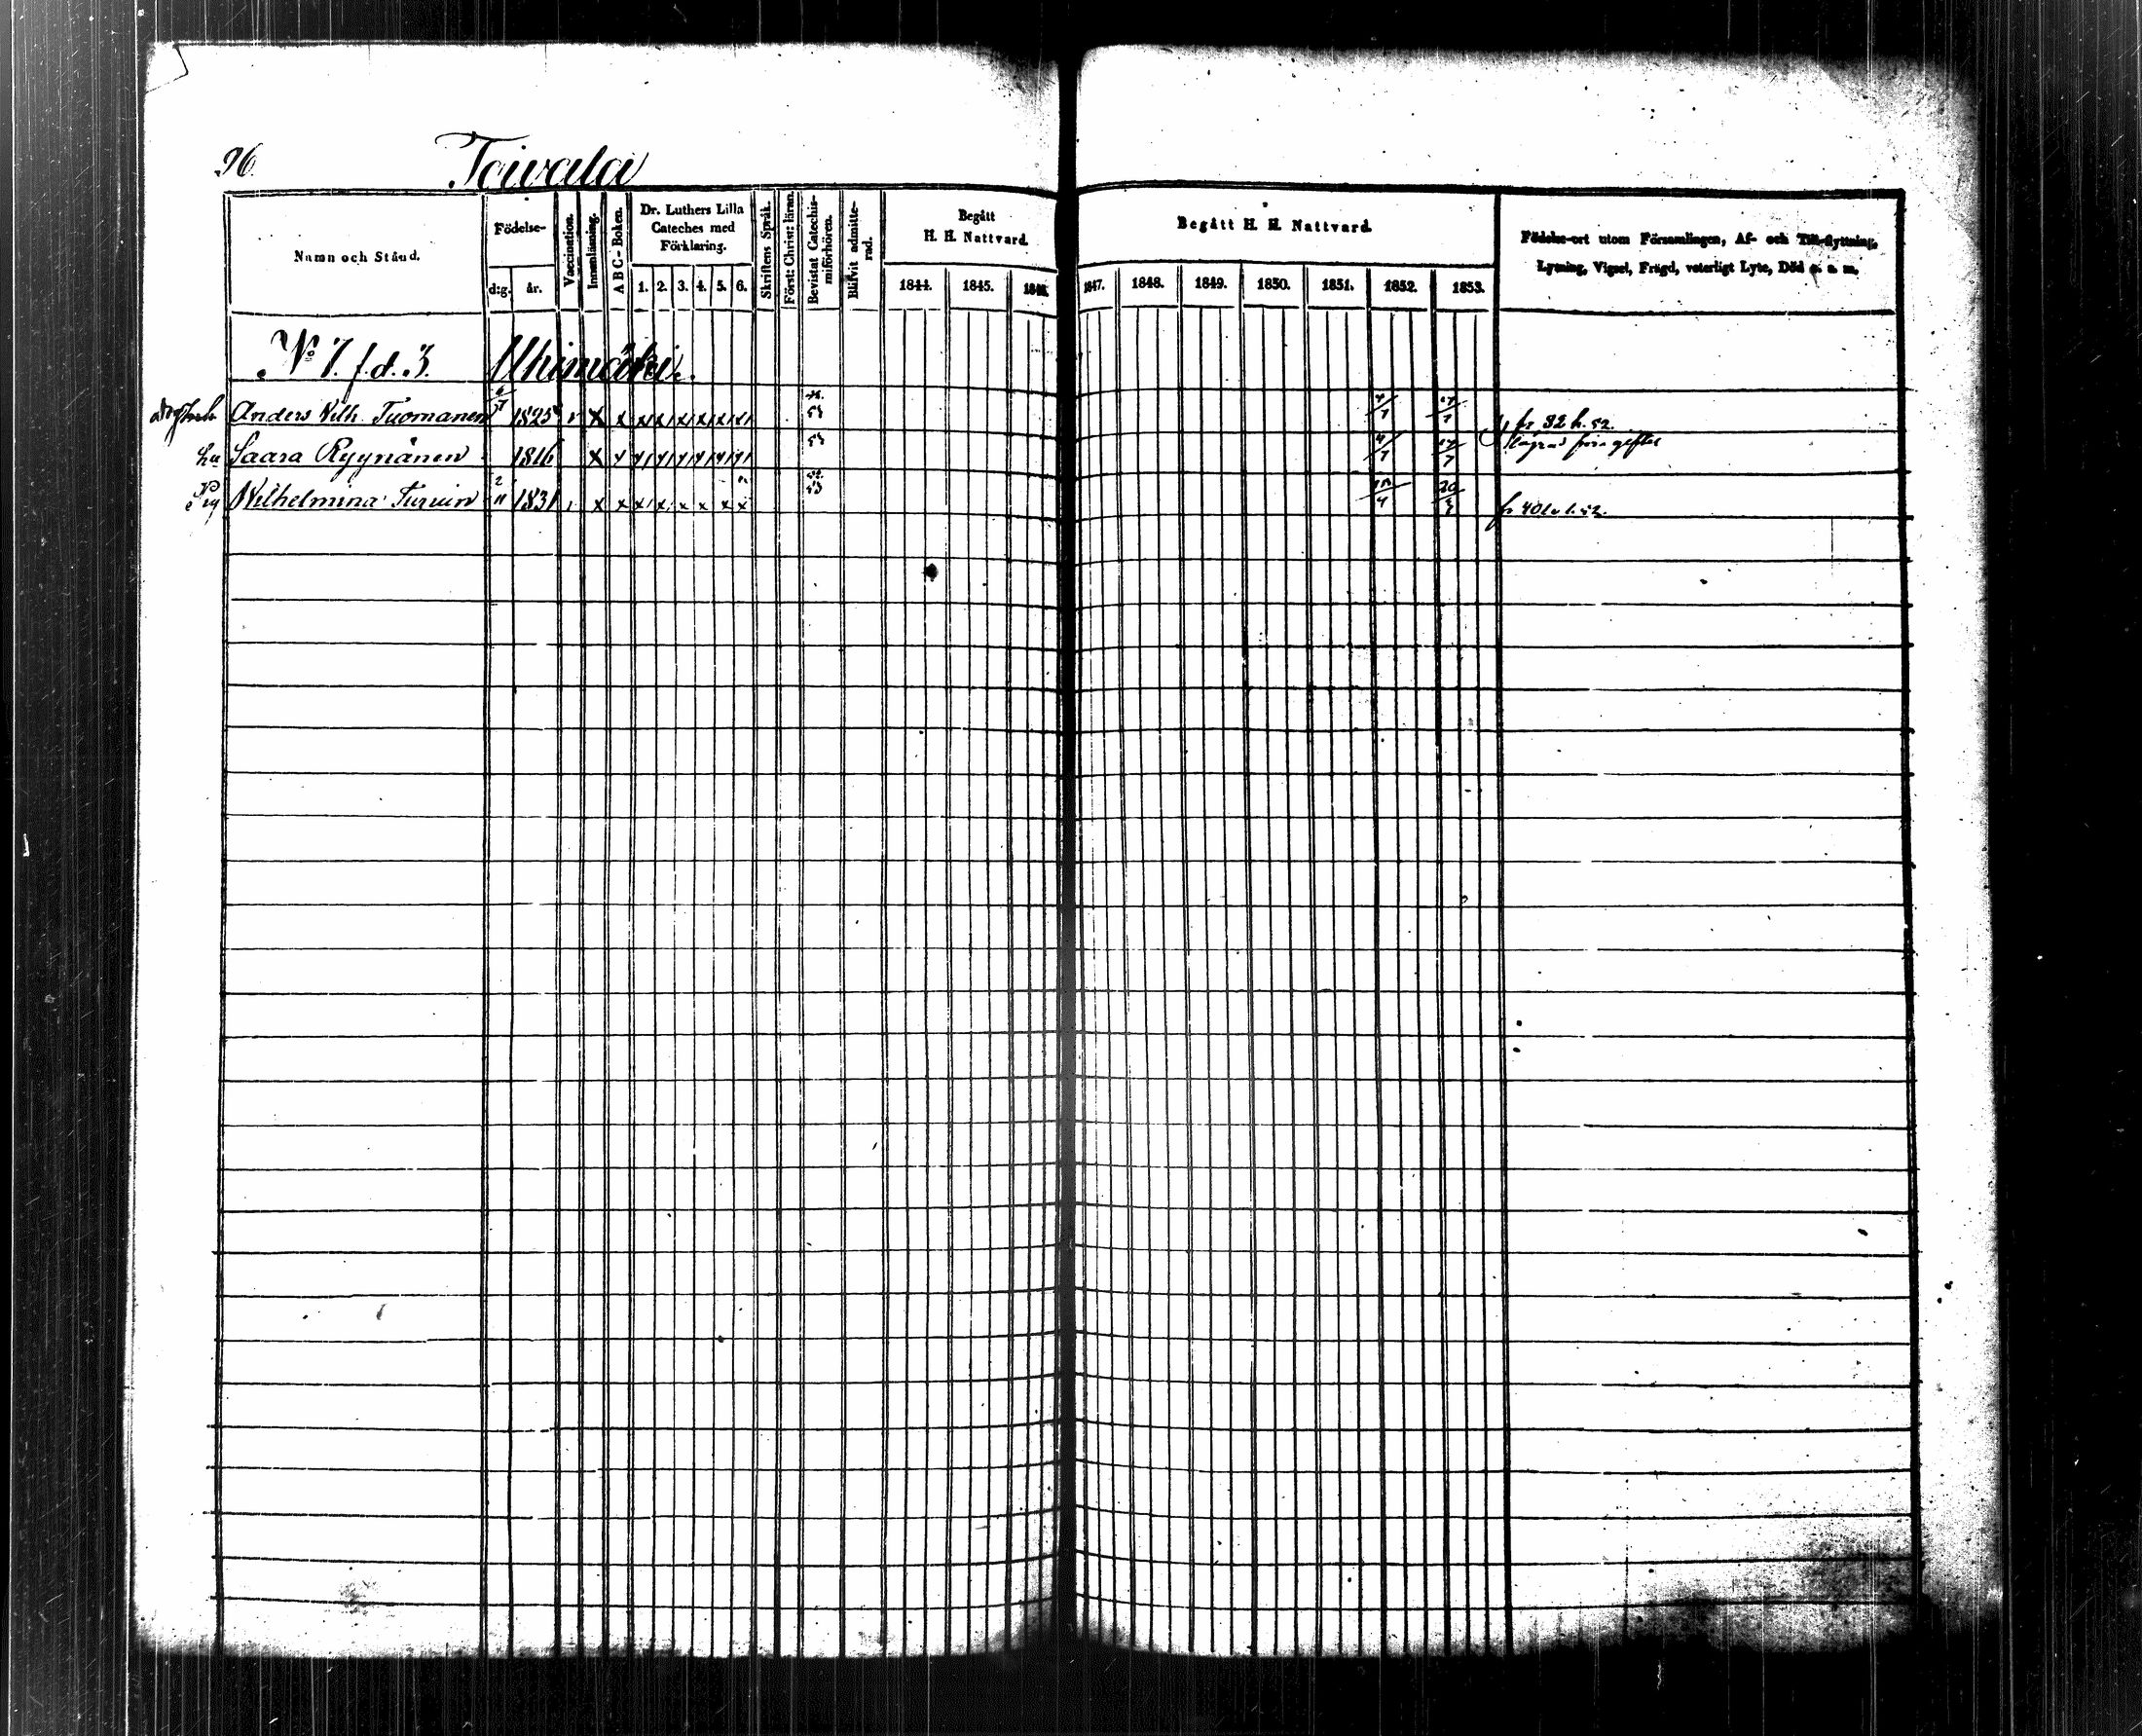 96.
Taivala
Namn och Stånd.
Födelse-
d:g. år.
Vaccination.
Innanläsning.
A B C - Boken.
Dr. Luthers Lilla
Cateches med
Förklaring.
1. 2. 3. 4. 5. 6.
Skriftens Språk.
Först: Christ: läran.
Bevistat Catechis-
miförhören.
Blifvit admitte-
rad.
Begått
H. H. Nattvard.
1844. 1845. 1846.
Begått H. H. Nattvard.
1847. 1848. 1849. 1850. 1851. 1852. 1853.
Födelse-ort utom Församlingen, Af- och Till-flyttning,
Lysning, Vigsel, Frägd, veterligt Lyte, Död o. s. m.
No 7. f.d. 3. Uhimäki.
Anders Wilh. Tuomanen 1825 x x x x x x x x 53
hu Saara Ryynänen 1816 x x x x x x x x 53
Wilhelmina 2/11 1831 x x x x x x x x 52 53